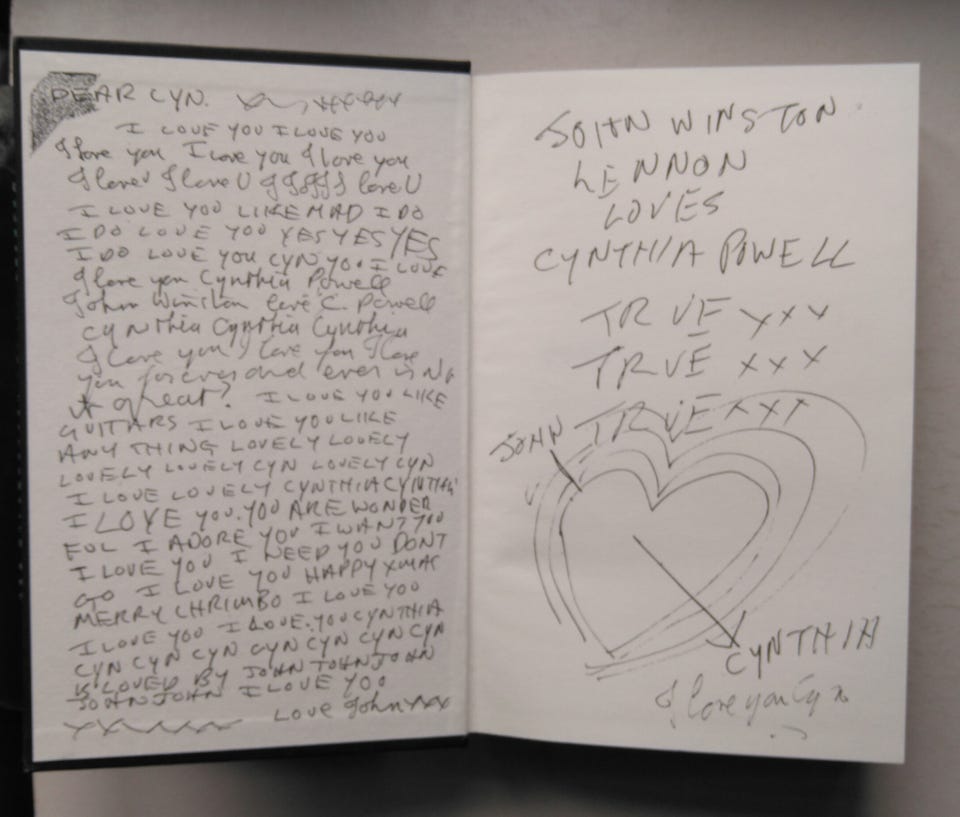 DEAR CYN. xxxxxxx
I LOVE YOU I LOVE YOU
I love you I love you I love you
I love U I love U I I I I I love U
I LOVE YOU LIKE MAD I DO
I DO LOVE YOU YES YES YES
I DO LOVE YOU CYN YOU I LOVE
I love you Cynthia Powell
John Winston love C. Powell
Cynthia Cynthia Cynthia
I love you I love you I love
you forever and ever isNt
it great? I LOVE YOU LIKE
GUITARS I LOVE YOU LIKE
ANY THING LOVELY LOVELY
LOVELY LOVELY CYN LOVELY CYN
I LOVE LOVELY CYNTHIA CYNTHIA
I LOVE YOU. YOU ARE WONDER
FUL I ADORE YOU I WANT YOU
I LOVE YOU I NEED YOU DONT
GO I LOVE YOU HAPPY XMAS
MERRY CHRIMBO I LOVE YOU
I LOVE YOU I LOVE. YOU CYNTHIA
CYN CYN CYN CYN CYN CYN CYN
IS LOVED BY JOHN JOHN JOHN
JOHN JOHN I LOVE YOU
LOVE John xxx
JOHN WINSTON
LENNON
LOVES
CYNTHIA POWELL
TRUE xxx
TRUE xxx
TRUE xxx
JOHN
CYNTHIA
I love you Cy x